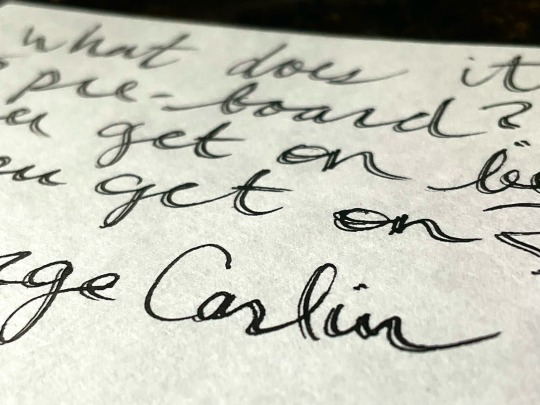 what does it
pre-board?
get on
get on
Carlin